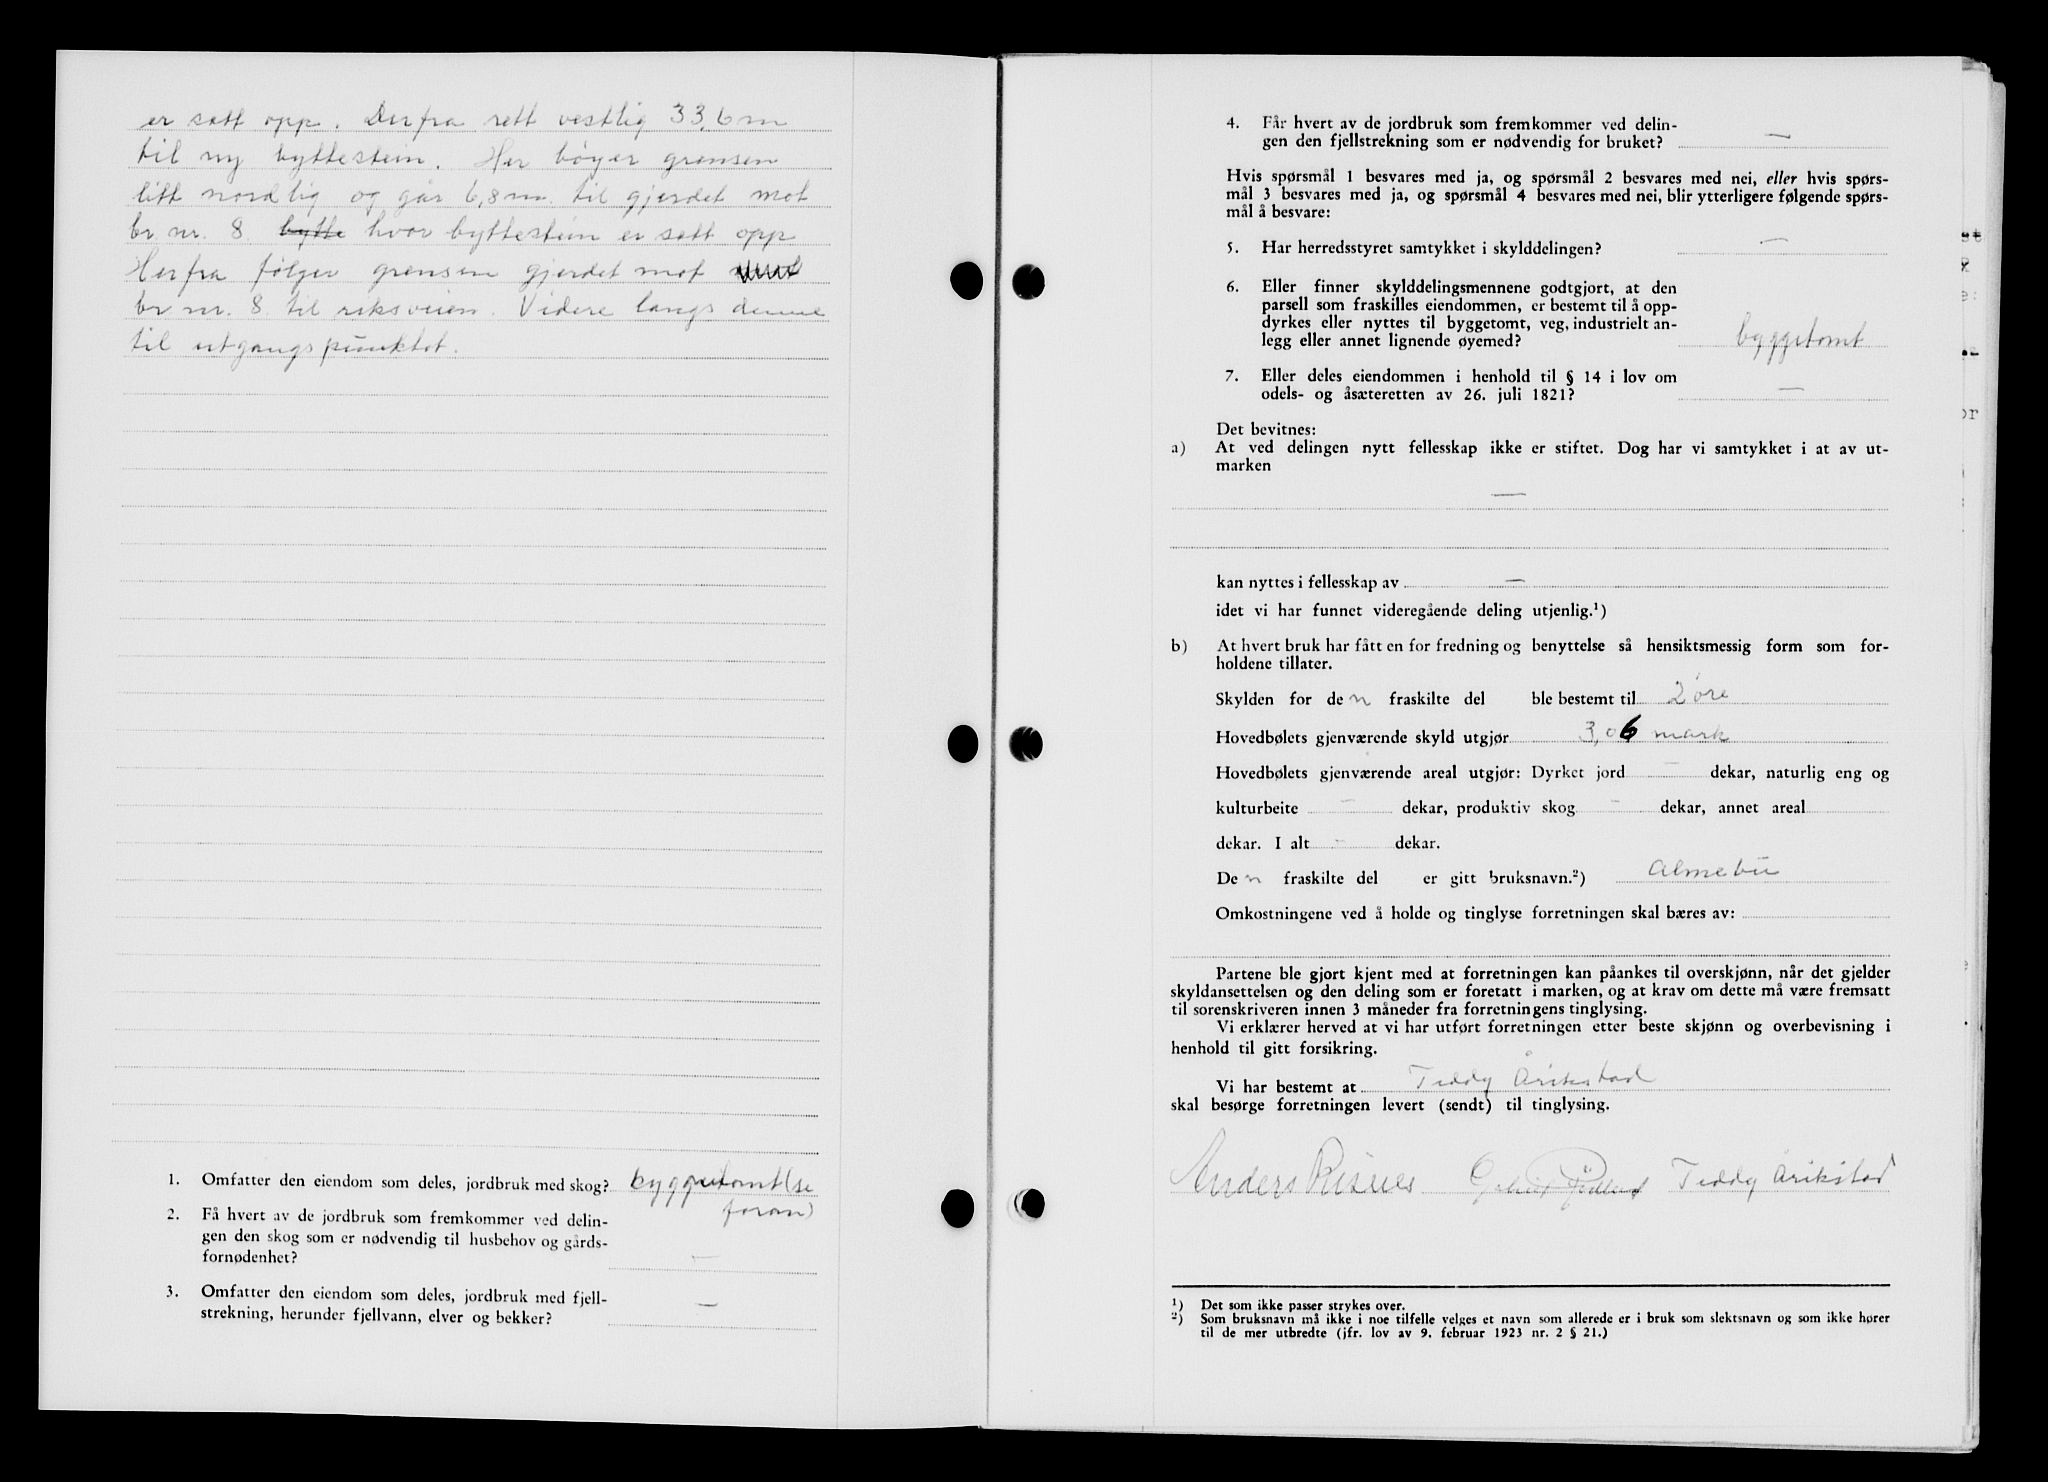 er satt opp. Derfra rett vestlig 33,6 m
til ny byttestein. Her bøyer grensen
litt nordlig og går 6,8 m. til gjerdet mot
br. nr. 8. bytte hvor byttestein er satt opp
Herfra følger grensen gjerdet mot
br. nr. 8 til riksveien. Videre langs denne
til utgangspunktet.
1. Omfatter den eiendom som deles, jordbruk med skog? byggetomt (se
foran)
2. Få hvert av de jordbruk som fremkommer ved delin-
gen den skog som er nødvendig til husbehov og gårds-
fornødenhet? —
3. Omfatter den eiendom som deles, jordbruk med fjell-
strekning, herunder fjellvann, elver og bekker? —
4. Får hvert av de jordbruk som fremkommer ved delin-
gen den fjellstrekning som er nødvendig for bruket? —
Hvis spørsmål 1 besvares med ja, og spørsmål 2 besvares med nei, eller hvis spørs-
mål 3 besvares med ja, og spørsmål 4 besvares med nei, blir ytterligere følgende spørs-
mål å besvare:
5. Har herredsstyret samtykket i skylddelingen? —
6. Eller finner skylddelingsmennene godtgjort, at den
parsell som fraskilles eiendommen, er bestemt til å opp-
dyrkes eller nyttes til byggetomt, veg, industrielt an-
legg eller annet lignende øyemed? byggetomt
7. Eller deles eiendommen i henhold til § 14 i lov om
odels- og åsæteretten av 26. juli 1821? —
Det bevitnes:
a) At ved delingen nytt fellesskap ikke er stiftet. Dog har vi samtykket i at av ut-
marken
—
kan nyttes i fellesskap av —
idet vi har funnet videregående deling utjenlig.¹)
b) At hvert bruk har fått en for fredning og benyttelse så hensiktsmessig form som for-
holdene tillater.
Skylden for den fraskilte del ble bestemt til 2 øre
Hovedbølets gjenværende skyld utgjør 3,06 mark
Hovedbølets gjenværende areal utgjør: Dyrket jord — dekar, naturlig eng og
kulturbeite — dekar, produktiv skog — dekar, annet areal
dekar. I alt — dekar.
Den fraskilte del er gitt bruksnavn.²) Almebu
Omkostningene ved å holde og tinglyse forretningen skal bæres av:
Partene ble gjort kjent med at forretningen kan påankes til overskjønn, når det gjelder
skyldansettelsen og den deling som er foretatt i marken, og at krav om dette må være fremsatt
til sorenskriveren innen 3 måneder fra forretningens tinglysing.
Vi erklærer herved at vi har utført forretningen etter beste skjønn og overbevisning i
henhold til gitt forsikring.
Vi har bestemt at Teddy Årikstad
skal besørge forretningen levert (sendt) til tinglysing.
Anders Risnes Teddy Årikstad
¹) Det som ikke passer strykes over.
²) Som bruksnavn må ikke i noe tilfelle velges et navn som allerede er i bruk som slektsnavn og som ikke hører
til de mer utbredte (jfr. lov av 9. februar 1923 nr. 2 § 21.)